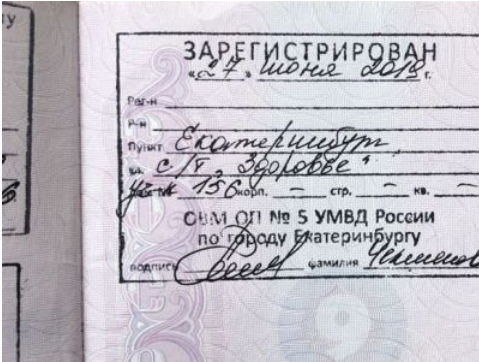 ЗАРЕГИСТРИРОВАН
«27» июня 2018 г.
Рег-н
Р-н
пункт Екатеринбург
ул. с/т "Здоровье"
уч-к 156 корп. – стр. – кв. –
ОВМ ОП № 5 УМВД России
по городу Екатеринбургу
подпись фамилия